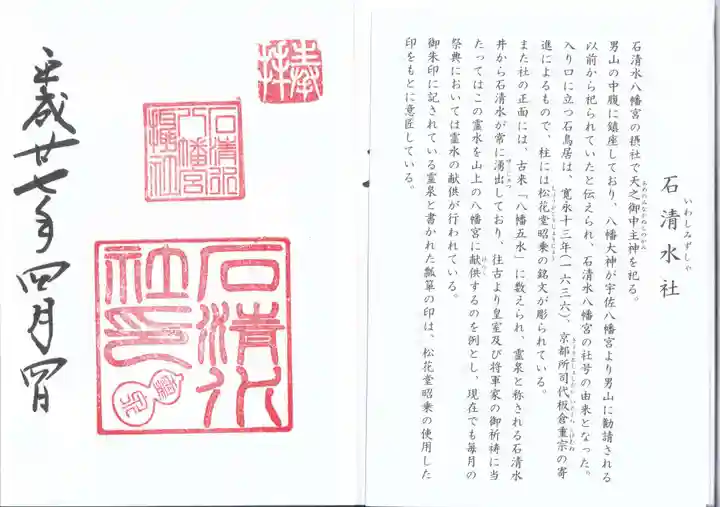 いわしみずしゃ
石清水社
石清水八幡宮の摂社で天之御中主神を祀る。
あめのみなかぬしのかみ
男山の中腹に鎮座しており、八幡大神が宇佐八幡宮より男山に勧請される
以前から祀られていたと伝えられ、石清水八幡宮の社号の由来となった。
入り口に立つ石鳥居は、寛永十三年(一六三六)、京都所司代板倉重宗の寄
きょうとしょしだいいたくらしげむね
進によるもので、柱には松花堂昭乗の銘文が彫られている。
しょうかどうしょうじょう
また社の正面には、古来「八幡五水」に数えられ、霊泉と称される石清水
井から石清水が常に湧出しており、往古より皇室及び将軍家の御祈祷に当
ゆうしゅつ
たってはこの霊水を山上の八幡宮に献供するのを例とし、現在でも毎月の
けんく
祭典においては霊水の献供が行われている。
御朱印に記されている霊泉と書かれた瓢箪の印は、松花堂昭乗の使用した
印をもとに意匠している。
奉拝
石清水
八幡宮
摂社
石清水
社印
霊泉
平成廿七年四月四日